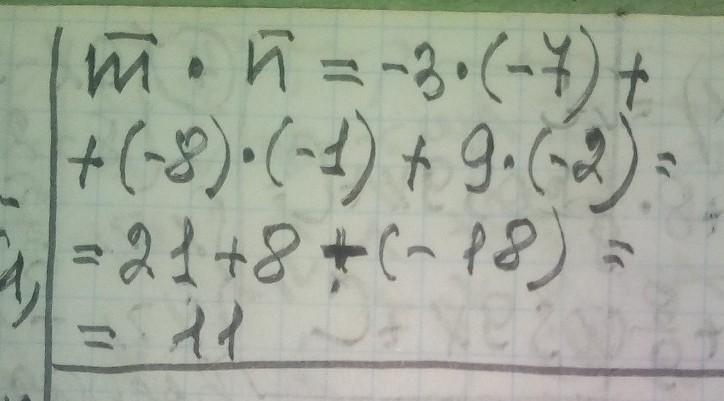 m̄ · n̄ = -3·(-7) +
+ (-8)·(-1) + 9·(-2) =
= 21 + 8 + (-18) =
= 11
1,